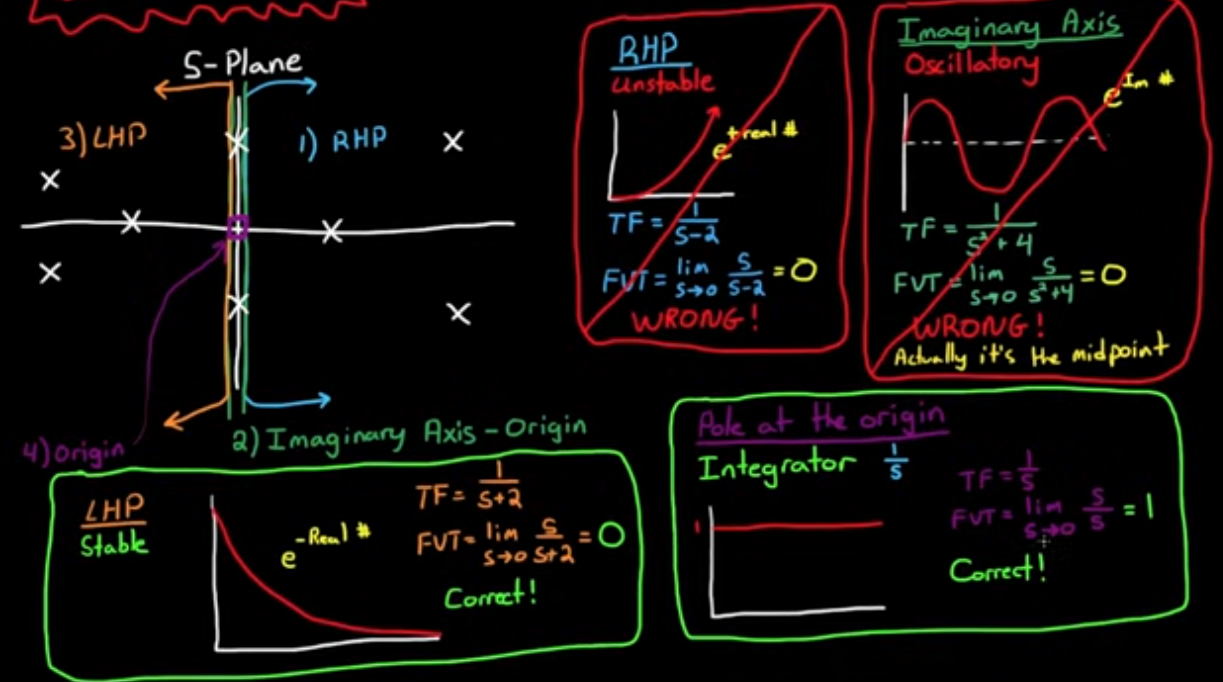 S-Plane
3) LHP
1) RHP
4) Origin
2) Imaginary Axis - Origin
RHP
Unstable
e^+real #
TF = 1/(s-2)
FVT = lim s→0 s/(s-2) = 0
WRONG!
Imaginary Axis
Oscillatory
e^Im #
TF = 1/(s²+4)
FVT = lim s→0 s/(s²+4) = 0
WRONG!
Actually it's the midpoint
LHP
Stable
e^-Real #
TF = 1/(s+2)
FVT = lim s→0 s/(s+2) = 0
Correct!
Pole at the origin
Integrator 1/s
1
TF = 1/s
FVT = lim s→0 s/s = 1
Correct!